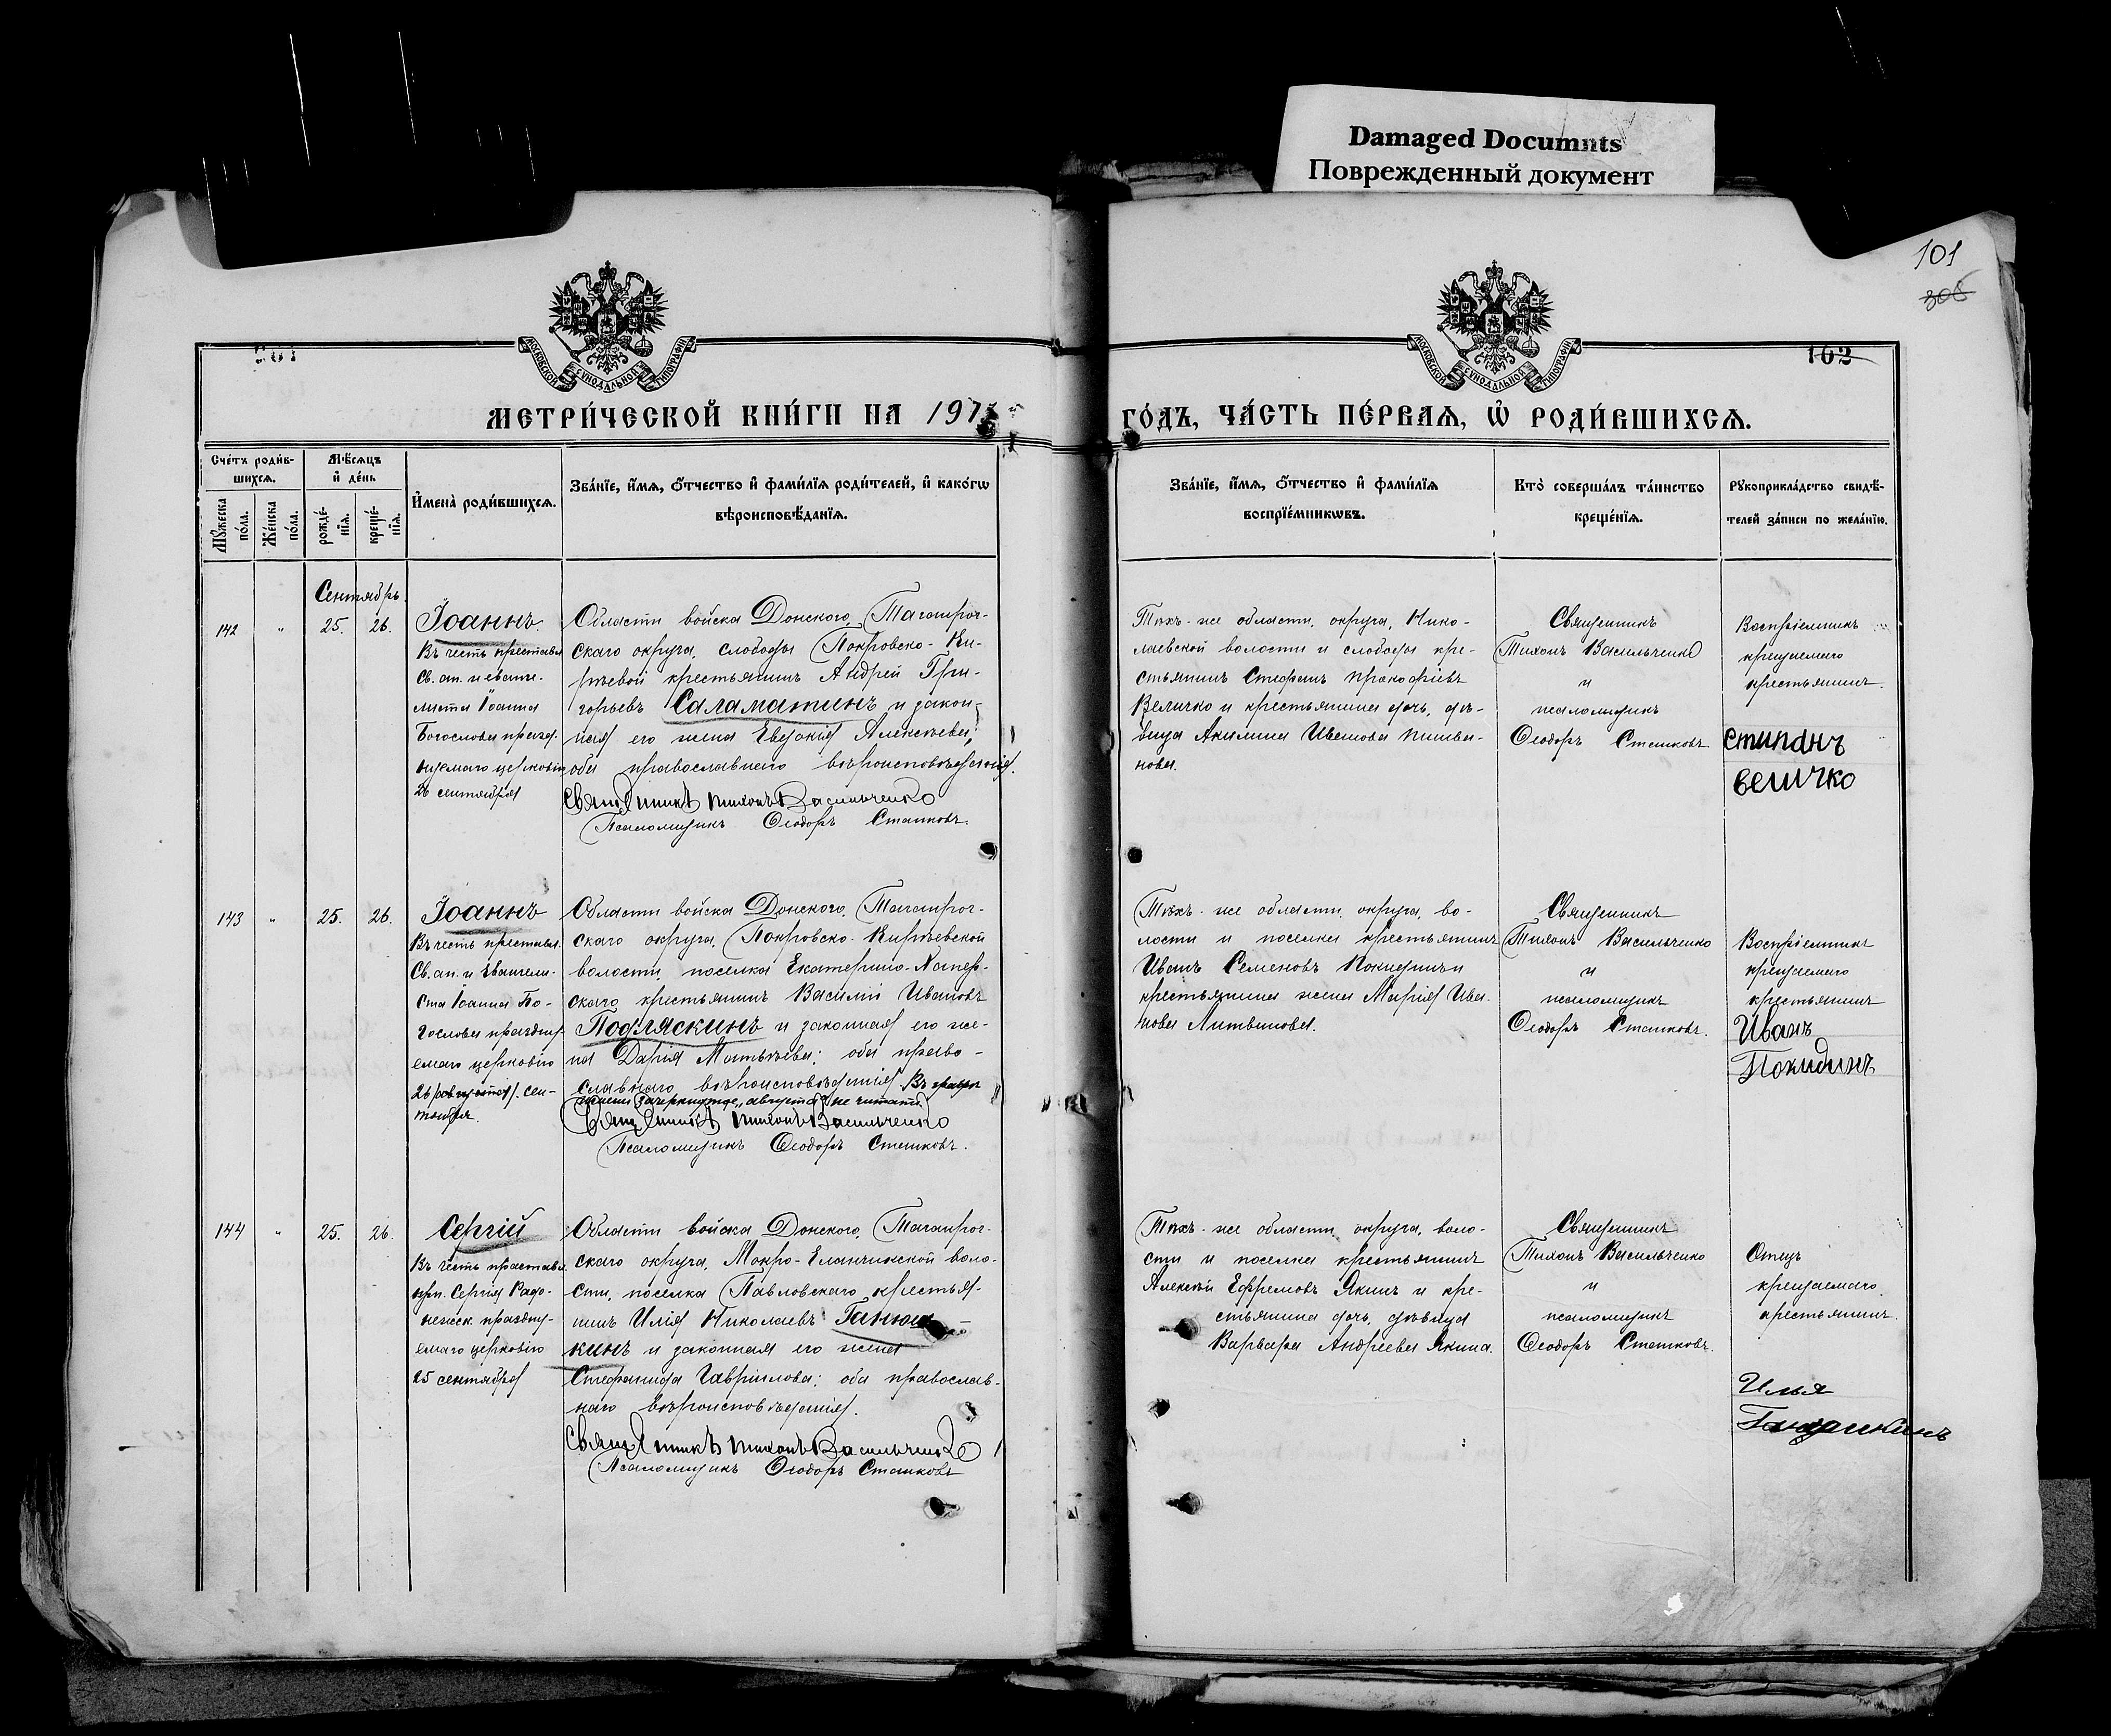 Damaged Documnts
Поврежденный документ
101
306
МОСКОВСКОЙ СѴНОДАЛЬНОЙ ТИПОГРАФІИ
МОСКОВСКОЙ СѴНОДАЛЬНОЙ ТИПОГРАФІИ
102
МЕТРИ́ЧЕСКОЙ КНИ́ГИ НА 191
ГО́ДЪ, ЧА́СТЬ ПЕ́РВАЯ, Ѡ РОДИ́ВШИХСЯ.
Сче́тъ роди́в-
шихся.
Мꙋ́жеска по́ла.
Же́нска по́ла.
Мѣ́сяцъ
и҆ де́нь
рожде́-
нїя.
креще́-
нїя.
И҆мена̀ роди́вшихся.
Зва́нїе, и҆́мя, ѻ҆́тчество и҆ фами́лїя роди́телей, и҆ како́гѡ
вѣроисповѣ́данїя.
Зва́нїе, и҆́мя, ѻ҆́тчество и҆ фами́лїя
воспрїе́мникѡвъ.
Кто̀ соверша́лъ та́инство
креще́нїя.
Рꙋкоприкла́дство свидѣ́-
телей за́писи по жела́нїю.
Сентябрь.
142 " 25. 26.
Іоаннъ.
Въ честь преставл.
Св. ап. и еванге-
листа Іоанна
Богослова празд-
нуемаго церковію
26 сентября
Области войска Донского, Таганрог-
скаго округа, слободы Покровско-Ки-
рѣевой крестьянинъ Андрей Гри-
горьевъ Саламатинъ и закон-
ная его жена Евдокія Алексѣева;
оба православнаго вѣроисповѣданія.
Священникъ Тихонъ Васильченко
Псаломщикъ Ѳеодоръ Сташковъ.
Тѣхъ-же области, округа, Нико-
лаевской волости и слободы кре-
стьянинъ Стефанъ Прокофіевъ
Величко и крестьянина дочь, дѣ-
вица Акилина Иванова Литви-
нова.
Священникъ
Тихонъ Васильченко
и
псаломщикъ
Ѳеодоръ Сташковъ
Воспріемникъ
крещаемаго
крестьянинъ.
Стипанъ
Величко
143 " 25. 26.
Іоаннъ
Въ честь преставл.
Св. ап. и Евангели-
ста Іоанна Бо-
гослова праздну-
емаго церковію
26 /августа/. сен-
тября.
Области войска Донского, Таганрог-
скаго округа, Покровско-Кирѣевской
волости, поселка Екатерино-Хопер-
скаго крестьянинъ Василій Ивановъ
Подляскинъ и законная его же-
на Дарія Матвѣева; оба право-
славнаго вѣроисповѣданія. Въ
зачеркнутое „августа" не читать.
Священникъ Тихонъ Васильченко
Псаломщикъ Ѳеодоръ Сташковъ.
Тѣхъ-же области, округа, во-
лости и поселка крестьянинъ
Иванъ Семеновъ и
крестьянина жена Марія Ива-
нова Литвинова.
Священникъ
Тихонъ Васильченко
и
псаломщикъ
Ѳеодоръ Сташковъ.
Воспріемникъ
крещаемаго
крестьянинъ
Иванъ
Покидинъ
144 " 25. 26.
Сергій
Въ честь преставл.
прп. Сергія Радо-
нежск. праздну-
емаго церковію
25 сентября
Области войска Донского, Таганрог-
скаго округа, Мокро-Еланчикской воло-
сти, поселка Павловскаго крестья-
нинъ Илія Николаевъ Ганюш-
кинъ и законная его жена
Стефанида Гаврилова; оба православ-
наго вѣроисповѣданія.
Священникъ Тихонъ Васильченко
Псаломщикъ Ѳеодоръ Сташковъ
Тѣхъ-же области, округа, воло-
сти и поселка крестьянинъ
Алексѣй Ефремовъ Якинъ и кре-
стьянина дочь, дѣвица
Варвара Андреева Якина.
Священникъ
Тихонъ Васильченко
и
псаломщикъ
Ѳеодоръ Сташковъ.
Отецъ
крещаемаго
крестьянинъ.
Илья